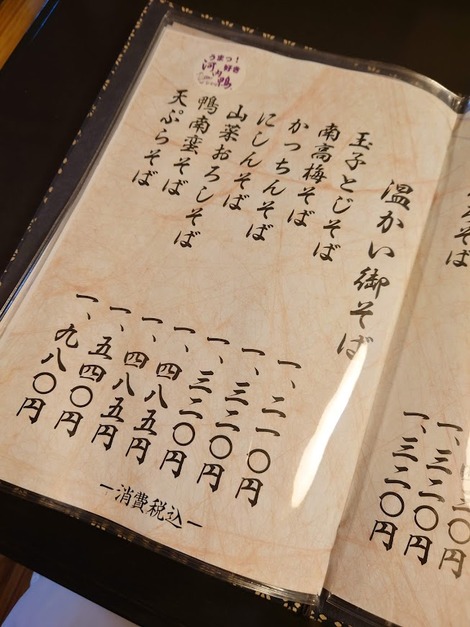 温かい御そば
玉子とじそば 一、二一〇円
南高梅そば 一、三二〇円
かっちんそば 一、三二〇円
にしんそば 一、四八五円
山菜おろしそば 一、四八五円
鴨南蛮そば 一、五四〇円
天ぷらそば 一、九八〇円
ー消費税込ー
うまっ！
好き
河内鴨
そば
一、三二〇円
一、三二〇円